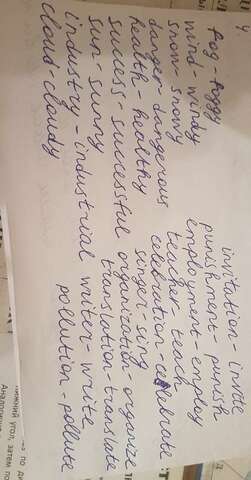 4.
fog - foggy
wind - windy
snow - snowy
danger - dangerous
health - healthy
success - successful
sun - sunny
industry - industrial
cloud - cloudy
invitation - invite
punishment - punish
employment - employ
teacher - teach
celebration - celebrate
singer - sing
organization - organize
translation - translate
writer - write
pollution - pollute
нижний угол, затем